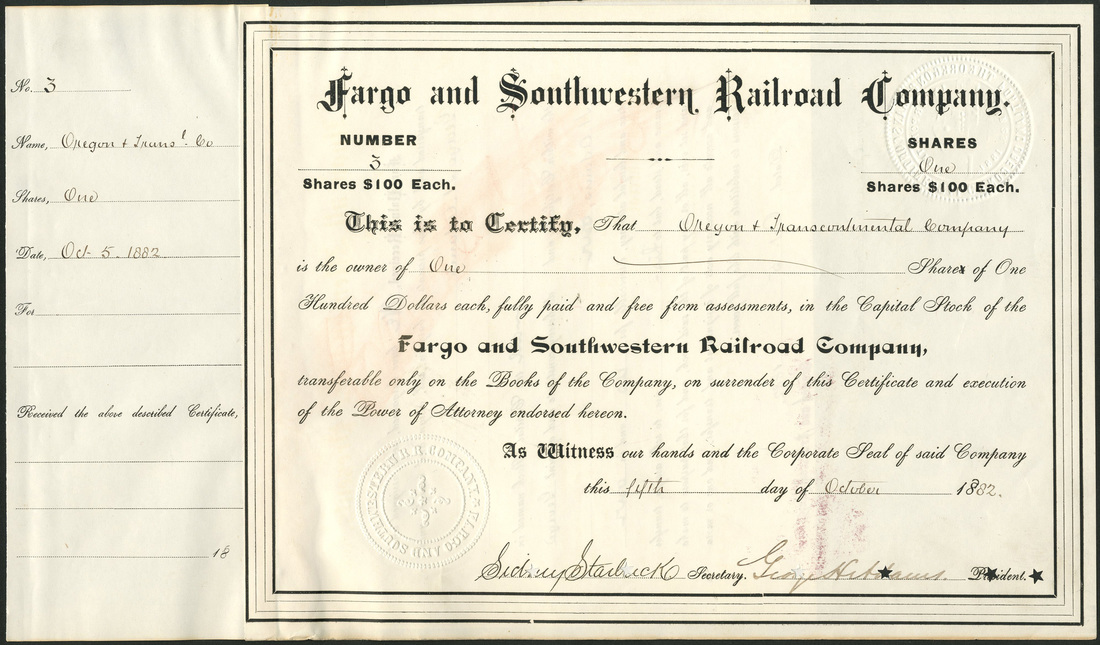 No. 3
Name, Oregon & Transl. Co
Shares, One
Date, Oct 5. 1882
For
Received the above described Certificate,
18
Fargo and Southwestern Railroad Company.
NUMBER
3
Shares $100 Each.
SHARES
One
Shares $100 Each.
This is to Certify, That Oregon & Transcontinental Company
is the owner of One Shares of One
Hundred Dollars each, fully paid and free from assessments, in the Capital Stock of the
Fargo and Southwestern Railroad Company,
transferable only on the Books of the Company, on surrender of this Certificate and execution
of the Power of Attorney endorsed hereon.
As Witness our hands and the Corporate Seal of said Company
this fifth day of October 1882.
FARGO AND SOUTHWESTERN R.R. COMPANY
Sidney Starbuck Secretary. George H Adams. President.